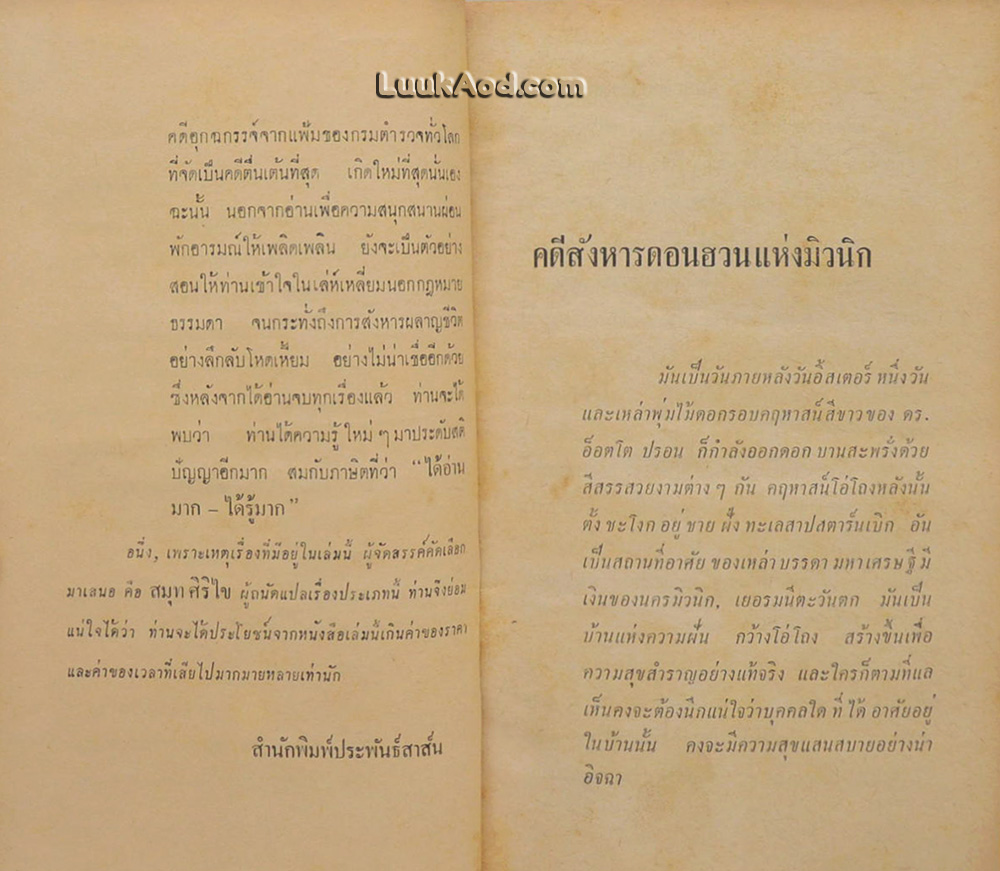 LuukAod.com
คดีอุกฉกรรจ์จากแฟ้มของกรมตำรวจทั่วโลก
ที่จัดเป็นคดีตื่นเต้นที่สุด เกิดใหม่ที่สุดนั่นเอง
ฉะนั้น นอกจากอ่านเพื่อความสนุกสนานผ่อน
พักอารมณ์ให้เพลิดเพลิน ยังจะเป็นตัวอย่าง
สอนให้ท่านเข้าใจในเล่ห์เหลี่ยมนอกกฎหมาย
ธรรมดา จนกระทั่งถึงการสังหารผลาญชีวิต
อย่างลึกลับโหดเหี้ยม อย่างไม่น่าเชื่ออีกด้วย
ซึ่งหลังจากได้อ่านจบทุกเรื่องแล้ว ท่านจะได้
พบว่า ท่านได้ความรู้ใหม่ ๆ มาประดับสติ
ปัญญาอีกมาก สมกับภาษิตที่ว่า “ได้อ่าน
มาก – ได้รู้มาก”
อนึ่ง, เพราะเหตุเรื่องที่มีอยู่ในเล่มนี้ ผู้จัดสรรค์คัดเลือก
มาเสนอ คือ สมุท ศิริไข ผู้ถนัดแปลเรื่องประเภทนี้ ท่านจึงย่อม
แน่ใจได้ว่า ท่านจะได้ประโยชน์จากหนังสือเล่มนี้เกินค่าของราคา
และค่าของเวลาที่เสียไปมากมายหลายเท่านัก
สำนักพิมพ์ประพันธ์สาส์น
คดีสังหารดอนฮวนแห่งมิวนิก
มันเป็นวันภายหลังวันอี้สเตอร์ หนึ่งวัน
และเหล่าพุ่มไม้ดอกรอบคฤหาสน์สีขาวของ ดร.
อ็อตโต ปรอน ก็กำลังออกดอก บานสะพรั่งด้วย
สีสรรสวยงามต่าง ๆ กัน คฤหาสน์โอ่โถงหลังนั้น
ตั้ง ชะโงก อยู่ ชาย ฝั่ง ทะเลสาปสตาร์นเบิก อัน
เป็นสถานที่อาศัย ของเหล่า บรรดา มหาเศรษฐี มี
เงินของนครมิวนิก, เยอรมนีตะวันตก มันเป็น
บ้านแห่งความฝัน กว้างโอ่โถง สร้างขึ้นเพื่อ
ความสุขสำราญอย่างแท้จริง และใครก็ตามที่แล
เห็นคงจะต้องนึกแน่ใจว่าบุคคลใด ที่ ได้ อาศัยอยู่
ในบ้านนั้น คงจะมีความสุขแสนสบายอย่างน่า
อิจฉา